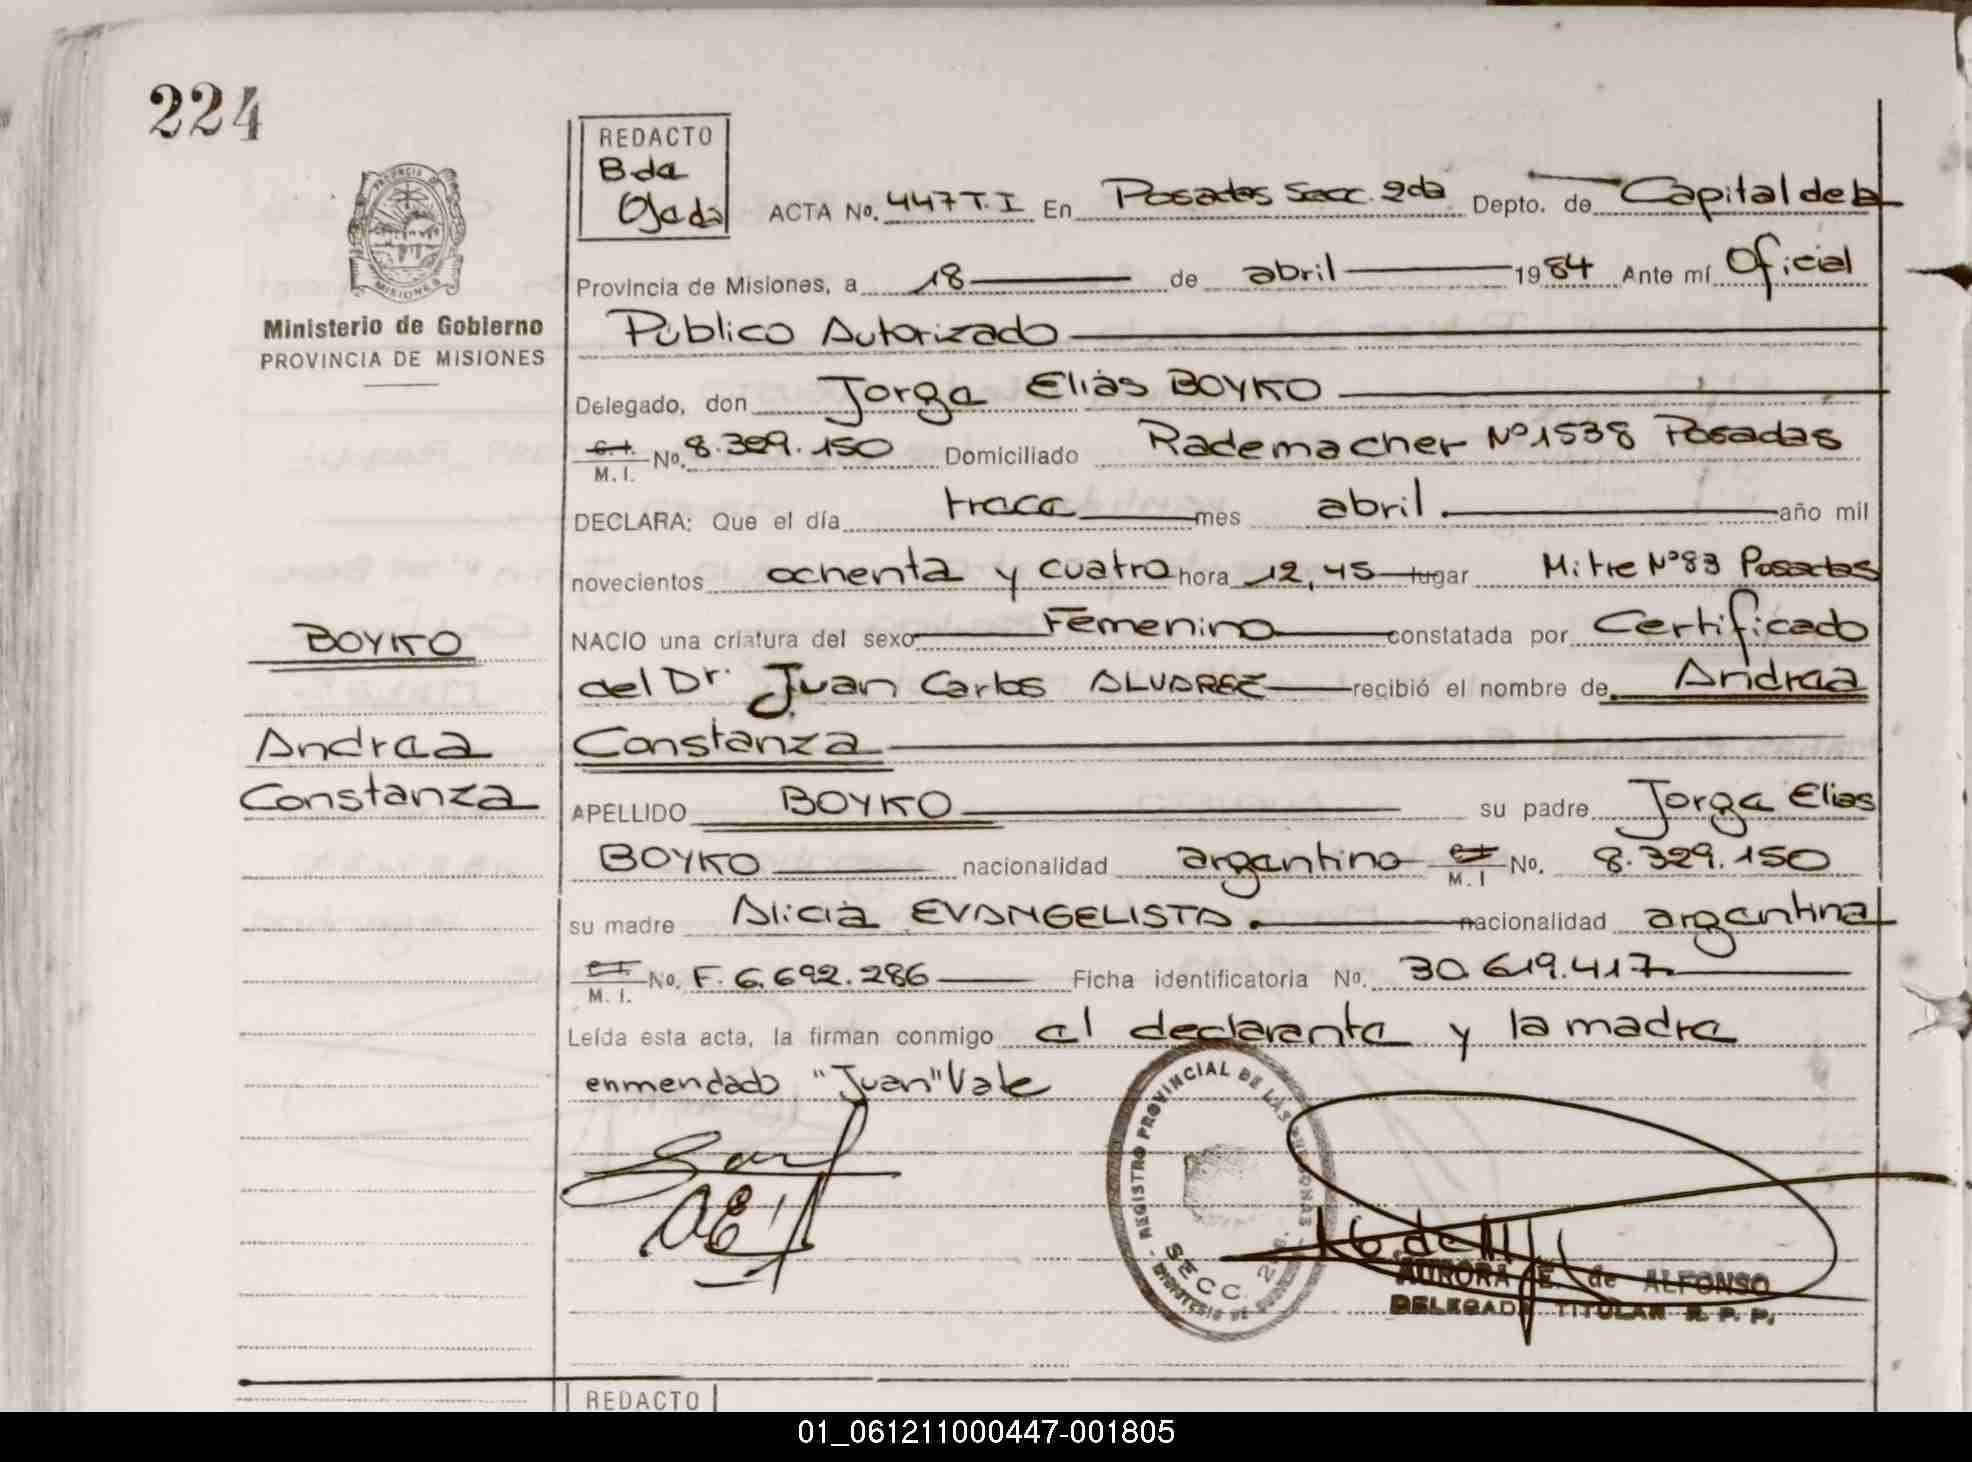 224
REDACTO
B. de
Ojeda
ACTA No. 447 T. I En Posadas Secc. 2da Depto. de Capital de la
PROVINCIA DE
MISIONES
Provincia de Misiones, a 18 de abril 1984 Ante mí Oficial
Ministerio de Gobierno
PROVINCIA DE MISIONES
Público Autorizado
Delegado, don Jorge Elías BOYKO
C.I.
M. I. No. 8.329.150 Domiciliado Rademacher Nº 1538 Posadas
DECLARA: Que el día trece mes abril año mil
novecientos ochenta y cuatro hora 12,45 lugar Mitre Nº 83 Posadas
BOYKO
NACIO una criatura del sexo Femenino constatada por Certificado
del Dr. Juan Carlos ALVAREZ recibió el nombre de Andrea
Andrea
Constanza
Constanza
APELLIDO BOYKO su padre Jorge Elias
BOYKO nacionalidad argentino C.I.
M. I No. 8.329.150
su madre Alicia EVANGELISTA. nacionalidad argentina
C.I.
M. I. No. F. 6.692.286 Ficha identificatoria No. 30.619.417
Leída esta acta, la firman conmigo el declarante y la madre
enmendado "Juan" Vale
REGISTRO PROVINCIAL DE LAS PERSONAS
SECC. 2da.
AURORA E. de ALFONSO
DELEGADA TITULAR R. P. P.
REDACTO
01_061211000447-001805